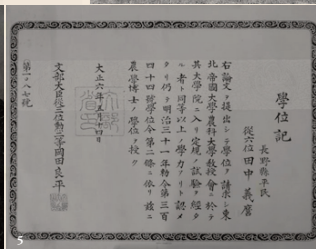 學位記
長野縣平民
從六位田中義麿
右論文ヲ提出シテ學位ヲ請求シ東
北帝國大學農科大學教授會ニ於テ
其大學院ニ入リ定規ノ試驗ヲ經タ
ル者ト同等以上ノ學力アリト認メ
タリ仍テ明治三十一年勅令第三百
四十四號學位令第二條ニ依リ茲ニ
農學博士ノ學位ヲ授ク
大正六年五月十四日
文部大臣從三位勳三等岡田良平
第一〇八七號
5